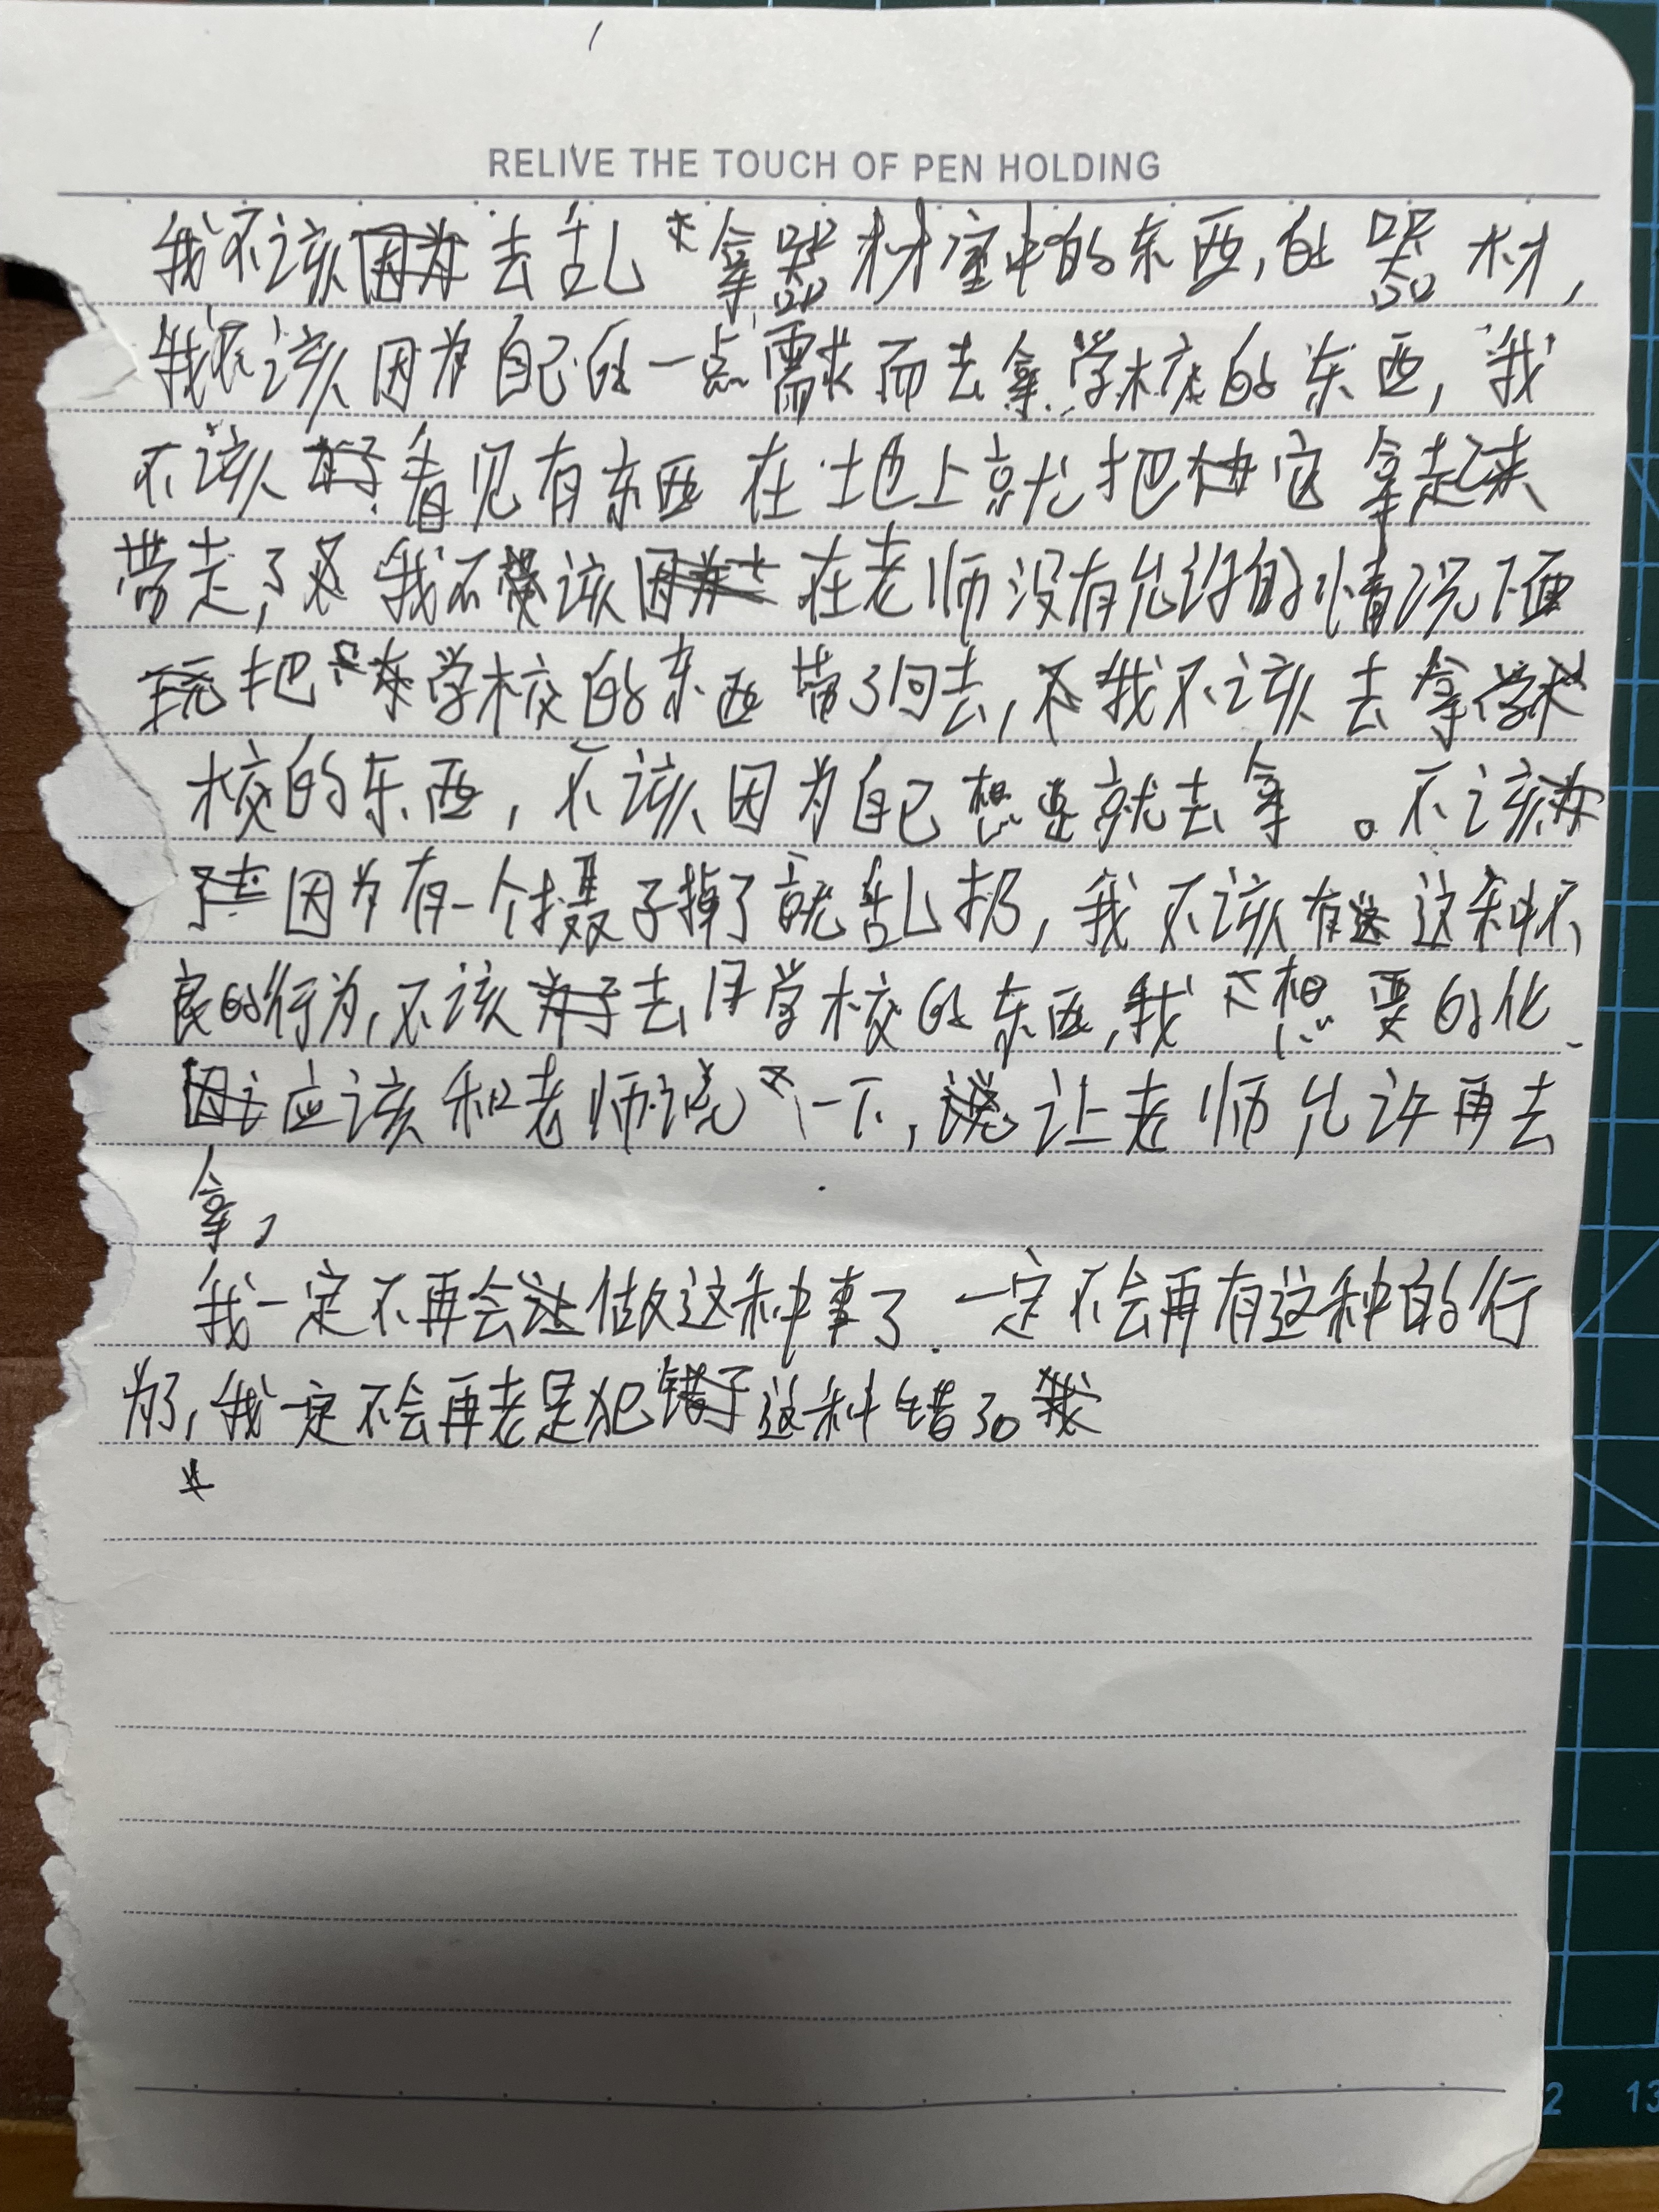 RELIVE THE TOUCH OF PEN HOLDING
我不该去乱拿器材室中的东西,的器材,
我不该因为自己的一点需求而去拿学校的东西,我
不该看见有东西在地上就把它拿起来
带走了,我不该在老师没有允许的情况下
把学校的东西带了回去,我不该去拿学
校的东西,不该因为自己想要就去拿。不该
因为有一个镊子掉了就乱扔,我不该有这种不
良的行为,不该去用学校的东西,我想要的化
应该和老师说一下,让老师允许再去
拿,
我一定不再会做这种事了.一定不会再有这种的行
为了,我一定不会再老是犯这种错了。
2 13